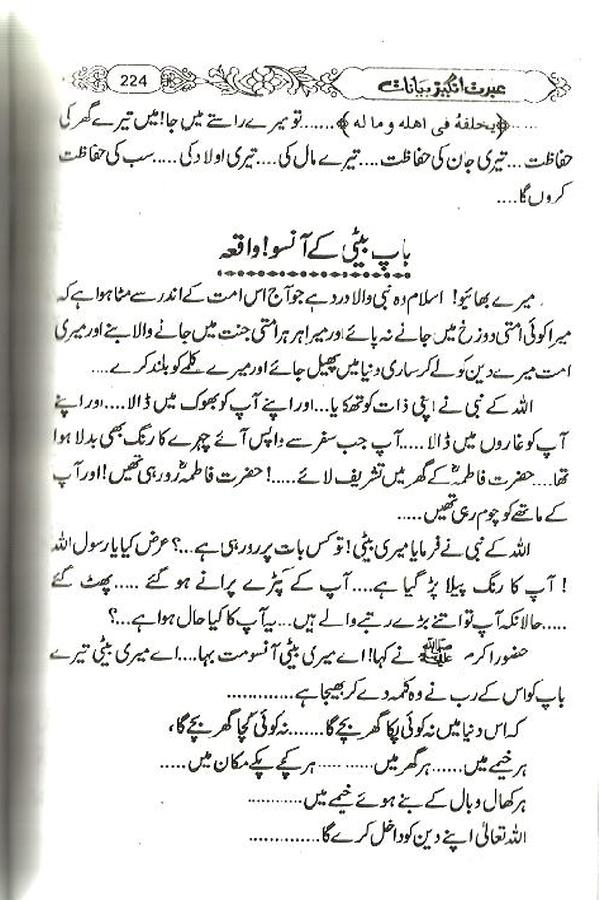 عبرت انگیز بیانات
224
.....﴿یخلفهٗ فی اهله وما له﴾......تو میرے راستے میں جا! میں تیرے گھر کی
حفاظت...تیری جان کی حفاظت....تیرے مال کی....تیری اولاد کی.....سب کی حفاظت
کروں گا....
باپ بیٹی کے آنسو! واقعہ
میرے بھائیو! اسلام وہ نبی والا درد ہے جو آج اس امت کے اندر سے مٹا ہوا ہے کہ
میرا کوئی امتی دوزخ میں جانے نہ پائے اور میرا ہر ہر امتی جنت میں جانے والا بنے اور میری
امت میرے دین کو لے کر ساری دنیا میں پھیل جائے اور میرے کلمے کو بلند کرے....
اللہ کے نبی نے اپنی ذات کو تھکایا...اور اپنے آپ کو بھوک میں ڈالا....اور اپنے
آپ کو غاروں میں ڈالا.....آپ جب سفر سے واپس آئے چہرے کا رنگ بھی بدلا ہوا
تھا....حضرت فاطمہؓ کے گھر میں تشریف لائے.....! حضرت فاطمہؓ رو رہی تھیں! اور آپ
کے ماتھے کو چوم رہی تھیں.....
اللہ کے نبی نے فرمایا میری بیٹی! تو کس بات پر رو رہی ہے...؟ عرض کیا یا رسول اللہ
! آپ کا رنگ پیلا پڑ گیا ہے....آپ کے کپڑے پرانے ہو گئے .....پھٹ گئے
.....حالانکہ آپ تو اتنے بڑے رتبے والے ہیں...یہ آپ کا کیا حال ہوا ہے...؟
حضور اکرم ﷺ نے کہا! اے میری بیٹی آنسو مت بہا....اے میری بیٹی تیرے
باپ کو اس کے رب نے وہ کلمہ دے کر بھیجا ہے.............
کہ اس دنیا میں نہ کوئی پکا گھر بچے گا.......نہ کوئی کچا گھر بچے گا،
ہر خیمے میں......ہر گھر میں...........ہر کچے پکے مکان میں.....
ہر کھال و بال کے بنے ہوئے خیمے میں...........
اللہ تعالیٰ اپنے دین کو داخل کرے گا..............